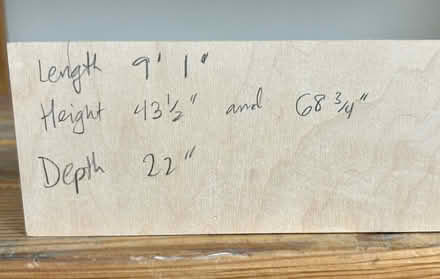 Length 9' 1"
Height 43 1/2" and 68 3/4"
Depth 22"